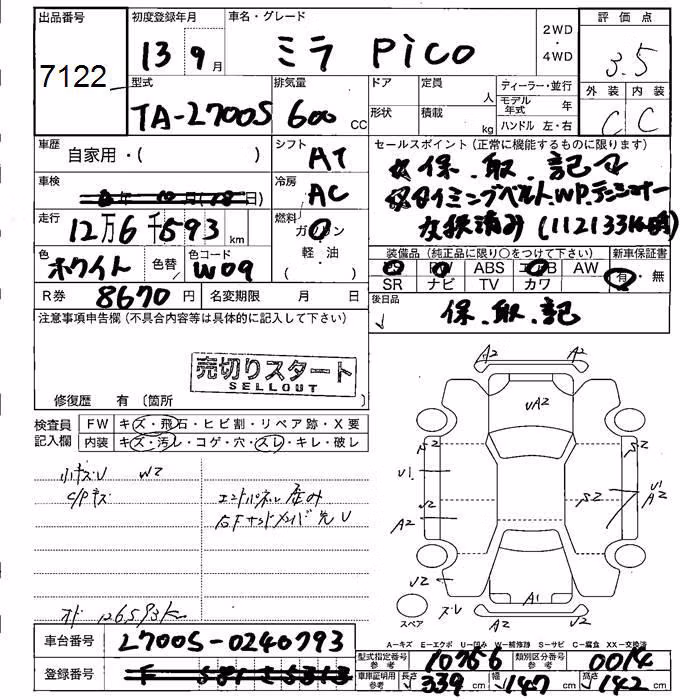 出品番号
7122
初度登録年月
13 9月
車名・グレード
ミラ PiCO
2WD
・
4WD
評価点
3.5
型式
TA-L700S
排気量
600 cc
ドア
定員
人
ディーラー・並行
モデル年式 年
形状
積載
kg
ハンドル 左・右
外装 内装
C C
車歴
自家用・( )
シフト
AT
セールスポイント(正常に機能するものに限ります)
☆保.取.記
☆タイミングベルト.WP.テンショナー
交換済み(112133K時)
車検
冷房
AC
走行
12万6千593km
燃料
ガソリン
軽・油
( )
色
ホワイト
色替
色コード
W09
装備品(純正品に限り○をつけて下さい)
新車保証書
PS PW ABS エアB AW
SR ナビ TV カワ
有・無
R券 8670円
名変期限 月 日
後日品
保.取.記
注意事項申告欄(不具合内容等は具体的に記入して下さい)
売切りスタート
SELLOUT
修復歴 有〔箇所 〕
検査員
記入欄
FW キズ・飛石・ヒビ割・リペア跡・X要
内装 キズ・汚レ・コゲ・穴・スレ・キレ・破レ
小キズU W2
C/Pキズ
オド 126593km
A2 A2
UA2
S2 S2
U1
U2 S2
A2
U1
A2
U2
A1
ズレ
A2 U2
スペア
A-キズ E-エクボ U-凹み W-補修跡 S-サビ C-腐食 XX-交換済
車台番号 L700S-0240793
登録番号
型式指定番号 参考 10756
類別区分番号 参考 0014
車庫証明用 参考 長さ 339cm 幅 147cm 高さ 142cm